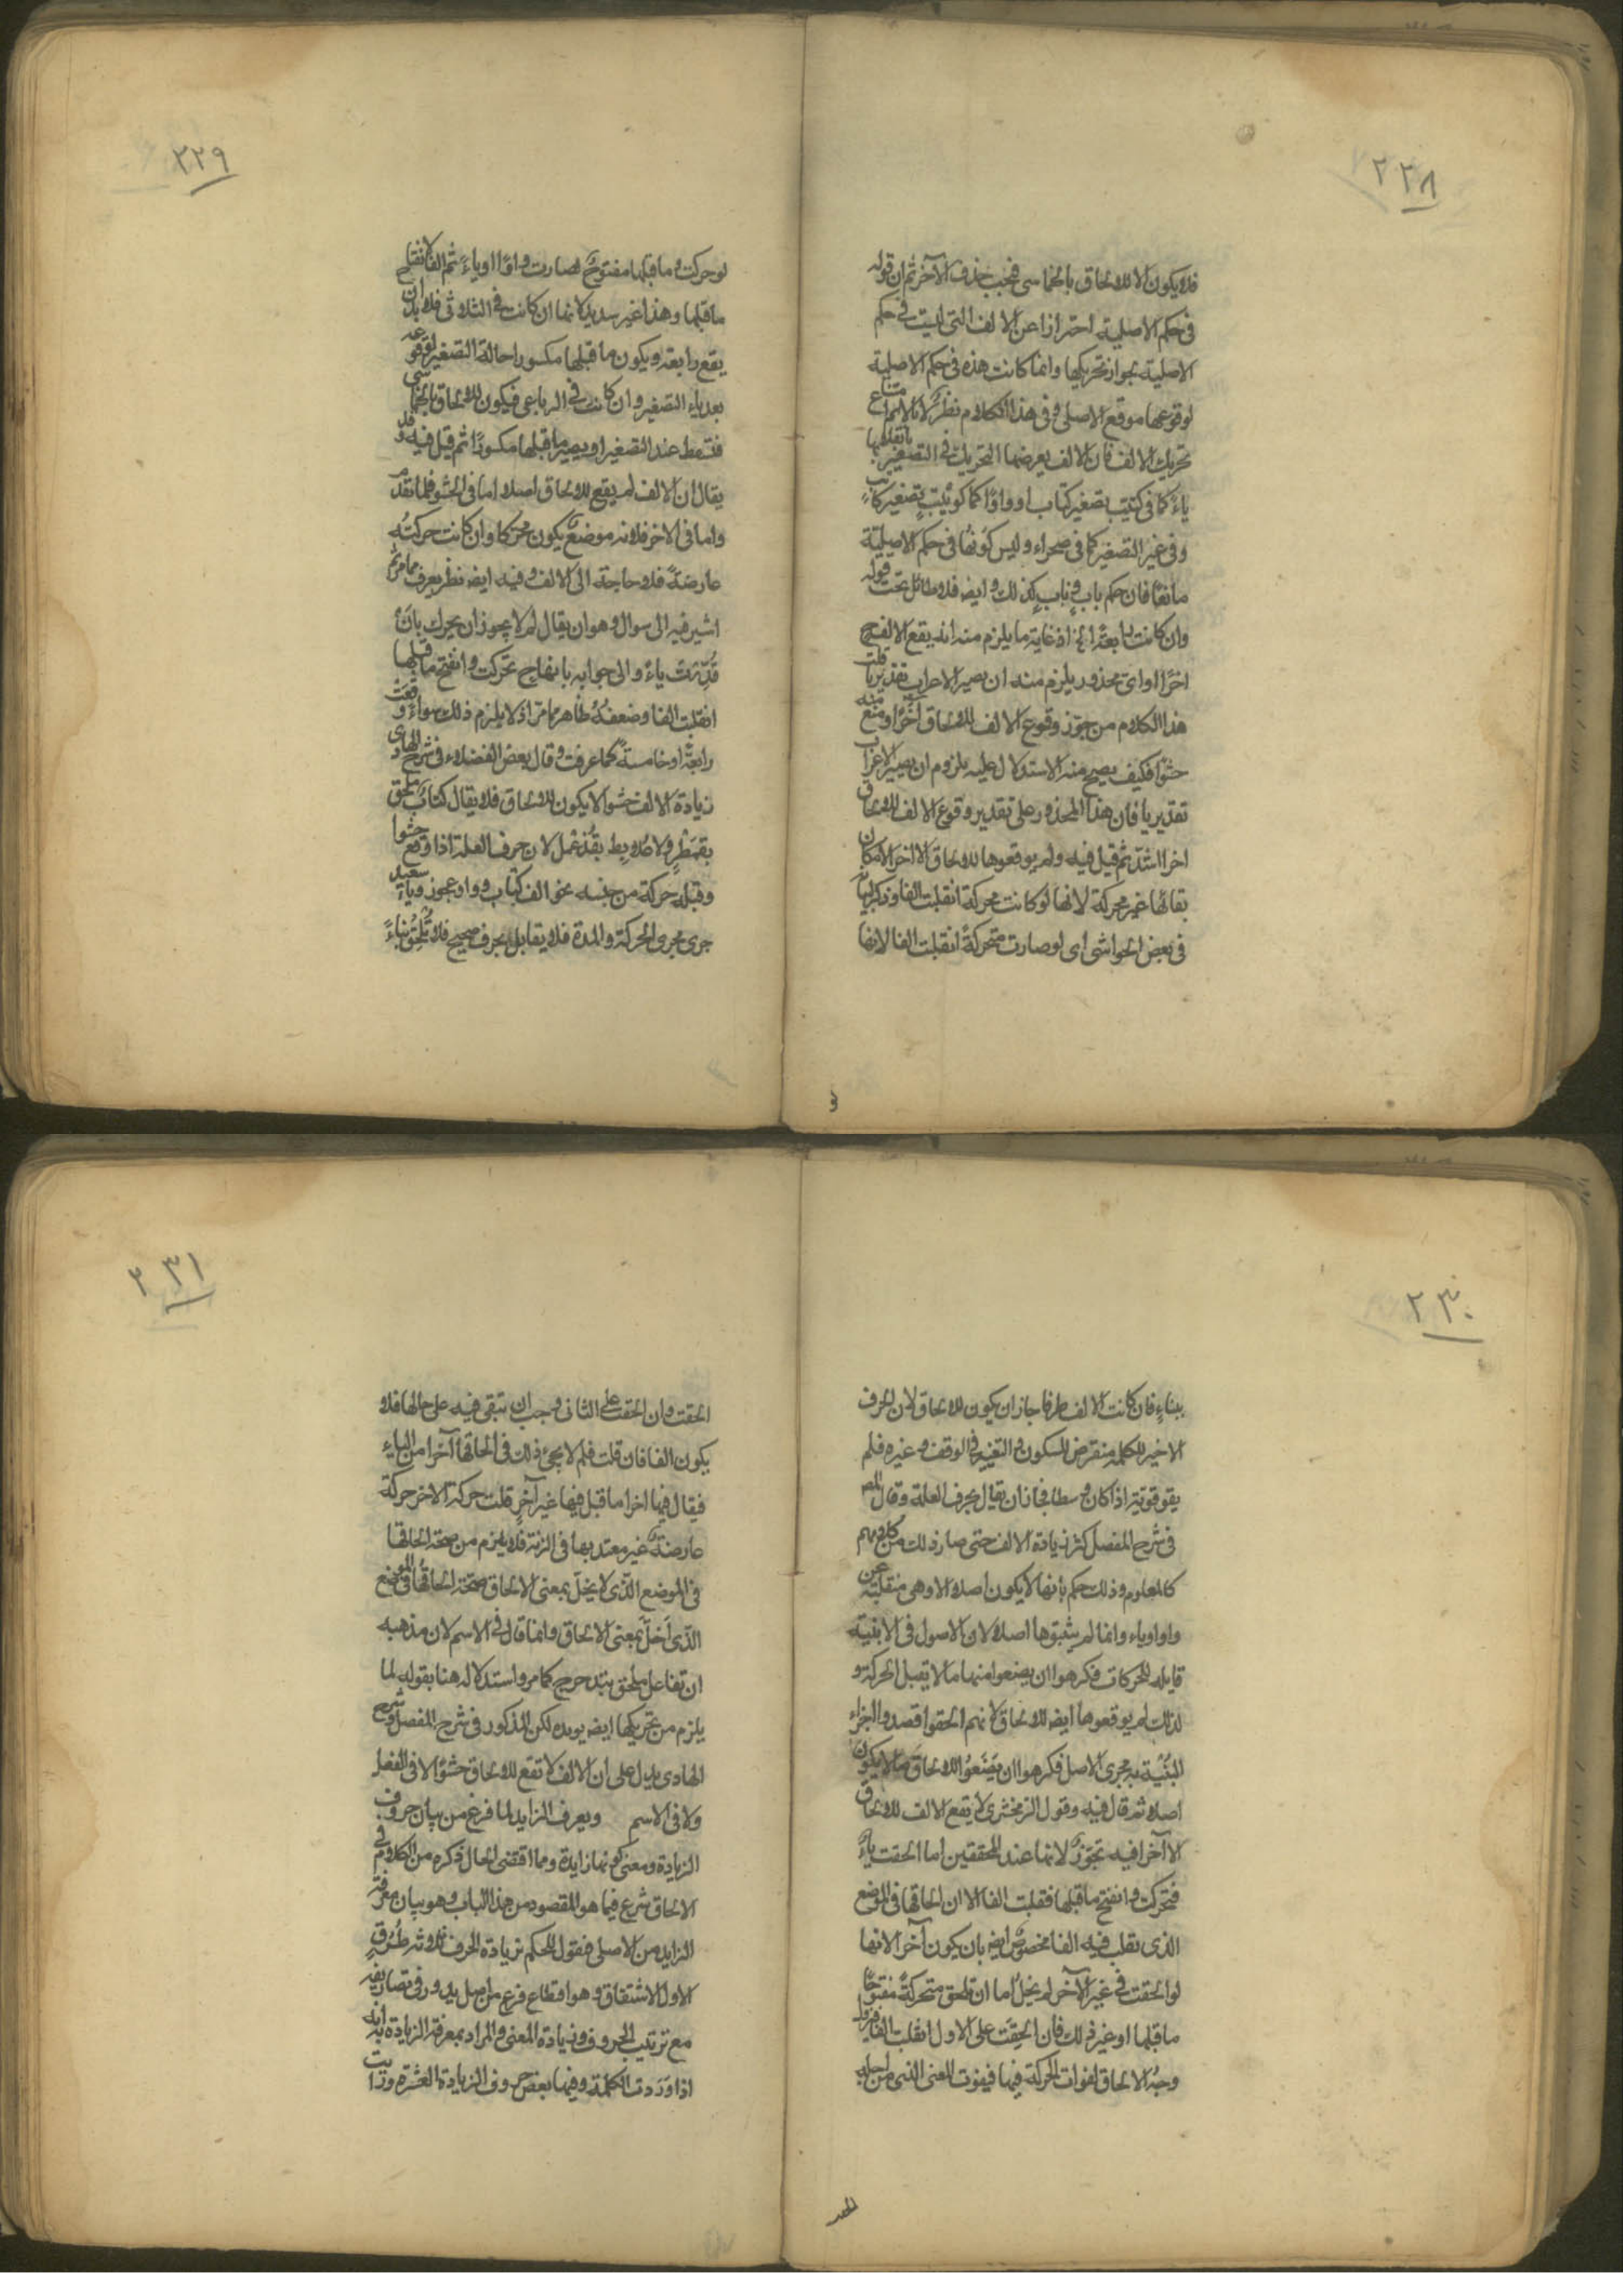 ٢٢٨
فلا يكون الا للالحاق بالخماسى فيجب حذف الآخر ثم ان قوله
فى حكم الاصلية احتراز عن الالف التى ليست فى حكم
الاصلية بجواز تحريكها وانما كانت هذه فى حكم الاصلية
لوقوعها موقع الاصلى وفى هذا الكلام نظر لانا لا نم امتناع
تحريك الالف فان الالف يعرضها التحريك فى التصغير بانقلابها
ياءً كما فى كتيب تصغير كتاب او واوًا كما كويتب تصغير كاتب
وفى غير التصغير كما فى صحراء وليس كونها فى حكم الاصلية
مانعًا فان حكم باب وناب كذلك وايضا فلا طائل تحت قوله
وان كانت رابعة الخ اذ غاية ما يلزم منه انه يقع الالف ح
اخرًا اواى محذور يلزم منه ان يصير الاعراب تقديريا قلت
هذا الكلام من جوّز وقوع الالف للالحاق آخرًا ومنع منه
حشوًا فكيف يصح منه الاستدلال عليه بلزوم ان يصير الاعراب
تقديريا فان هذا المحذور على تقدير وقوع الالف للالحاق
اخرا اشدّ ثم قيل فيه ولم يوقعوها للالحاق الا اخرا لامكان
بقائها غير محركة لانها لو كانت محركة انقلبت الفا وذكر
فى بعض الحواشى اى لو صارت متحركة انقلبت الفا لانها
٢٢٩
لو حركت وما قبلها مفتوح لصارت واوًا او ياءً ثم الفا لانفتاح
ما قبلها وهذا غير سديد لانها ان كانت فى الثلاثى فلا بد ان
يقع رابعة ويكون ما قبلها مكسورا حالة التصغير لوقوعه
بعد ياء التصغير وان كانت فى الرباعى فيكون للالحاق بالخماسى
فتسقط عند التصغير او يصير ما قبلها مكسورًا ثم قيل فيه وقد
يقال ان الالف لم يقع للالحاق اصلا اما فى الحشو فلما تقدم
واما فى الاخر فلانه موضع يكون محركا وان كانت حركته
عارضةً فلا حاجة الى الالف وفيه ايضا نظر يعرف مما مر ثم
اشير فيه الى سوال وهو ان يقال لم لا يجوز ان يحرك بان
قُدّرت ياءً والى جوابه بانها ح تحركت وانفتح ما قبلها
انقلبت الفا وضعفه ظاهر مما مر اذ لا يلزم ذلك سواء وقعت
رابعة او خامسة كما عرفت وقال بعض الفضلاء فى شرح الهادى و
زيادة الالف حشوا لا يكون للالحاق فلا يقال كتاب ملحق
بقمطر ولا عُلابط بقذعمل لان حرف العلة اذا وقع حشوا
وقبله حركة من جنسه نحو الف كتاب وواو عجوز وياء سعيد
جرى مجرى الحركة والمدة فلا يقابل بحرف صحيح فلا تُلحِق بناءً
٢٣٠
ببناءٍ فان كانت الالف طرفا جاز ان يكون للالحاق لان الحرف
الاخير للكلمة متعرض للسكون والتغيير فى الوقف وغيره فلم
يقو قوته اذا كان وسطا فجاز ان يقابل بحرف العلة وقال المص
فى شرح المفصل كثر زيادة الالف حتى صار ذلك من كلامهم
كالمعلوم وذلك حكم بانها لا يكون اصلا الا وهى منقلبة عن
واو او ياء وانما لم يثبتوها اصلا لان الاصول فى الابنية
قابله للحركات فكرهوا ان يضعوا منها ما لا تقبل الحركة و
لذلك لم يوقعوها ايضا للالحاق لانهم الحقوا قصدوا اجراء
المبنية به مجرى الاصل فكرهوا ان يضعوا للالحاق ما لا يكون
اصلا ثم قال فيه وقول الزمخشرى لا يقع الالف للالحاق
الا آخرا فيه تجوّز لانها عند المحققين اما الحقت ياءً
فتحركت وانفتح ما قبلها فقلبت الفا الا ان الحاقها فى الموضع
الذى تقلب فيه الفا مخصوص ايضا بان يكون آخرا لانها
لو الحقت فى غير الآخر لم يخل اما ان تلحق متحركة مفتوحًا
ما قبلها او غير ذلك فان الحقت على الاول انقلبت الفا
وجه الالحاق لفوات الحركة فيها فيفوت المعنى الذى من اجله
٢٣١
الحقت وان الحقت على الثانى وجب ان تبقى فيه على حالها فلا
يكون الفا فان قلت فلم لا يجئ ذلك فى الحاقها آخرا من الياء
فيقال فيها اخرا ما قيل فيها غير آخرٍ قلت حركة الاخر حركة
عارضة غير معتد بها فى الزنة فلا يلزم من صحة الحاقها
فى الموضع الذى لا يخل بمعنى الالحاق صحة الحاقها فى الموضع
الذى اَخلّ بمعنى الالحاق وانما قال فى الاسم لان مذهبه
ان تفاعل ملحق بتدحرج كما مر واستدلاله هنا بقوله لما
يلزم من تحريكها ايضا يويده لكن المذكور فى شرح المفصل وشرح
الهادى يدل على ان الالف لا تقع للالحاق حشوًا لا فى الفعل
ولا فى الاسم ويعرف الزايد لما فرغ من بيان حروف
الزيادة ومعنى كونها زايدة ومما اقتضى الحال ذكره من الكلام فى
الالحاق شرع فيما هو المقصود من هذا الباب وهو بيان معرفة
الزايد من الاصلى فنقول للحكم بزيادة الحرف ثلاثة طُرُقٍ
الاول الاشتقاق وهو اقطاع فرع من اصل يدور فى تصاريفه
مع ترتيب الحروف وزيادة المعنى والمراد بمعرفة الزيادة به انه
اذا وردت الكلمة وفيها بعض حروف الزيادة العشرة ورايت